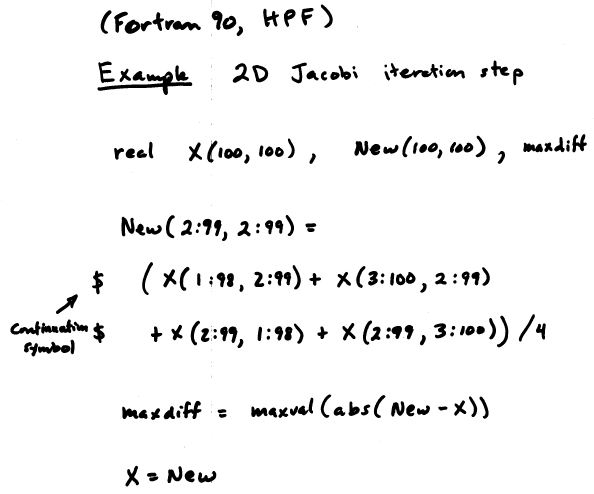 (Fortran 90, HPF)
Example 2D Jacobi iteration step
real X(100,100), New(100,100), maxdiff
New(2:99, 2:99) =
$ (X(1:98, 2:99) + X(3:100, 2:99)
Continuation symbol
$ + X(2:99, 1:98) + X(2:99, 3:100))/4
maxdiff = maxval(abs(New - X))
X = New